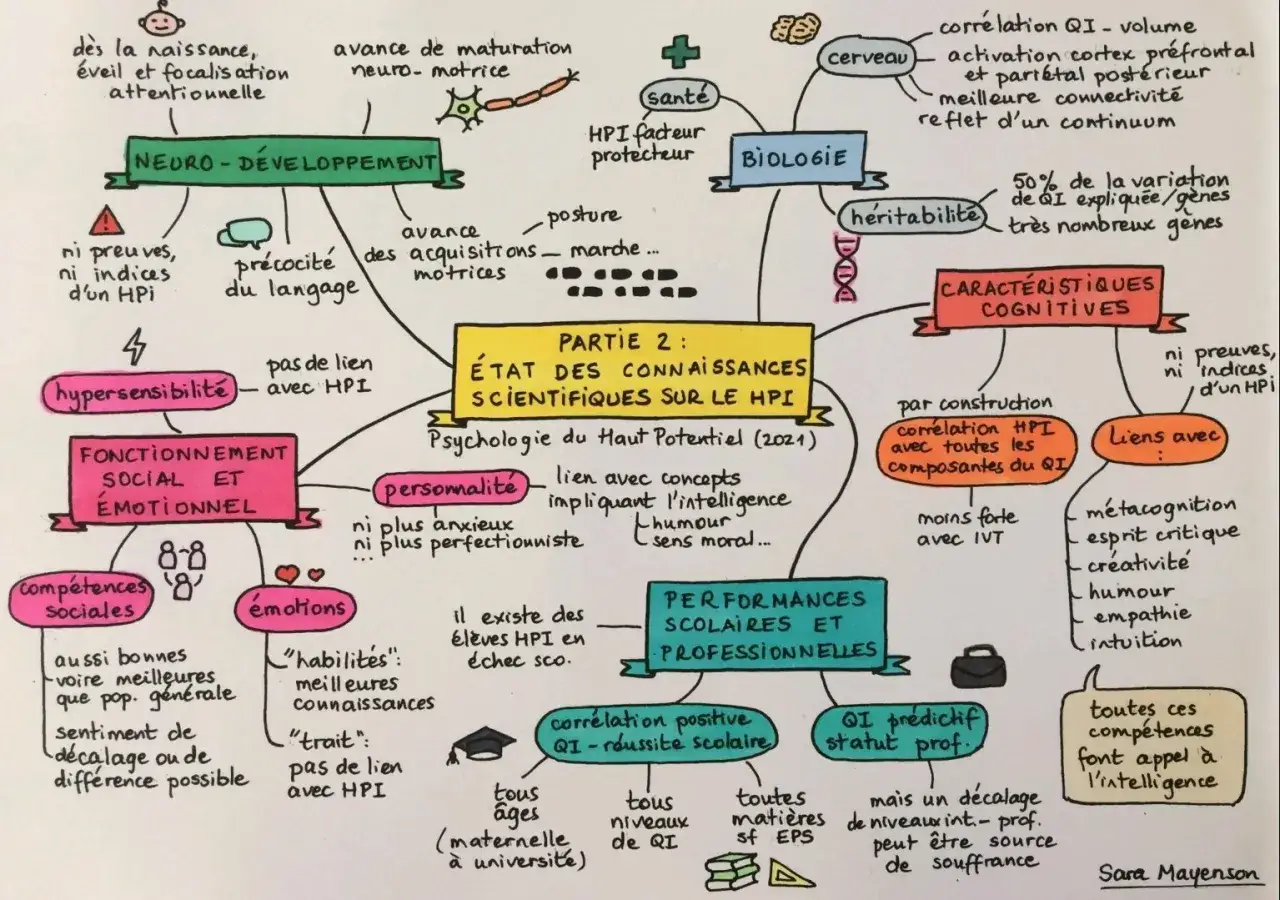 dès la naissance,
éveil et focalisation
attentionnelle
avance de maturation
neuro-motrice
NEURO-DÉVELOPPEMENT
ni preuves,
ni indices
d'un HPi
précocité
du langage
avance
des acquisitions
motrices
posture
marche...
santé
HPI facteur
protecteur
BIOLOGIE
cerveau
corrélation QI - volume
activation cortex préfrontal
et pariétal postérieur
meilleure connectivité
reflet d'un continuum
héritabilité
50% de la variation
de QI expliquée/gènes
très nombreux gènes
PARTIE 2 :
ÉTAT DES CONNAISSANCES
SCIENTIFIQUES SUR LE HPI
Psychologie du Haut Potentiel (2021)
CARACTÉRISTIQUES
COGNITIVES
par construction
corrélation HPI
avec toutes les
composantes du QI
moins forte
avec IVT
ni preuves,
ni indices
d'un HPi
Liens avec
:
métacognition
esprit critique
créativité
humour
empathie
intuition
toutes ces
compétences
font appel à
l'intelligence
hypersensibilité
pas de lien
avec HPI
FONCTIONNEMENT
SOCIAL ET
ÉMOTIONNEL
personnalité
lien avec concepts
impliquant l'intelligence
humour
sens moral...
ni plus anxieux
ni plus perfectionniste
...
compétences
sociales
aussi bonnes
voire meilleures
que pop. générale
sentiment de
décalage ou de
différence possible
émotions
"habilités":
meilleures
connaissances
"trait":
pas de lien
avec HPI
PERFORMANCES
SCOLAIRES ET
PROFESSIONNELLES
il existe des
élèves HPI en
échec sco.
corrélation positive
QI - réussite scolaire
tous
âges
(maternelle
à université)
tous
niveaux
de QI
toutes
matières
sf EPS
QI prédictif
statut prof.
mais un décalage
de niveaux int. - prof.
peut être source
de souffrance
Sara Mayenson